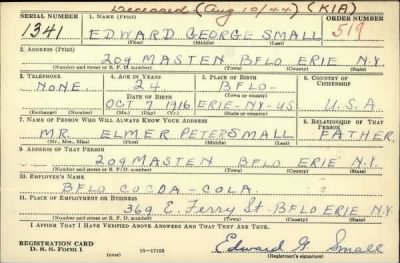 Deceased (Aug 10/44) (KIA)
SERIAL NUMBER 1. NAME (Print) ORDER NUMBER
1341 EDWARD GEORGE SMALL 519
(First) (Middle) (Last)
2. ADDRESS (Print)
209 MASTEN BFLO ERIE N.Y.
(Number and street or R. F. D. number) (Town) (County) (State)
3. TELEPHONE 4. AGE IN YEARS 5. PLACE OF BIRTH 6. COUNTRY OF CITIZENSHIP
NONE. 24 BFLO-
DATE OF BIRTH (Town or county)
OCT 7 1916 ERIE-NY-US U.S.A
(Exchange) (Number) (Mo.) (Day) (Yr.) (State or country)
7. NAME OF PERSON WHO WILL ALWAYS KNOW YOUR ADDRESS 8. RELATIONSHIP OF THAT PERSON
MR. ELMER PETER SMALL FATHER.
(Mr., Mrs., Miss) (First) (Middle) (Last)
9. ADDRESS OF THAT PERSON
209 MASTEN BFLO ERIE N.Y.
(Number and street or R. F. D. number) (Town) (County) (State)
10. EMPLOYER'S NAME
BFLO COCOA-COLA.
11. PLACE OF EMPLOYMENT OR BUSINESS
369 E. Ferry St. BFLO ERIE N.Y.
(Number and street or R. F. D. number) (Town) (County) (State)
I AFFIRM THAT I HAVE VERIFIED ABOVE ANSWERS AND THAT THEY ARE TRUE.
REGISTRATION CARD
D. S. S. Form 1 16-17105 Edward G. Small
(Registrant's signature)